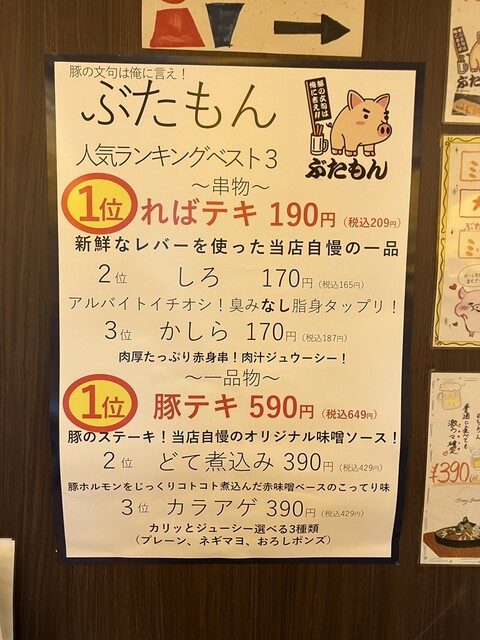 豚の文句は俺に言え！
ぶたもん
豚の文句は
俺に言え!!
ぶたもん
人気ランキングベスト３
〜串物〜
1位 ればテキ 190円（税込209円）
新鮮なレバーを使った当店自慢の一品
2位 しろ 170円（税込165円）
アルバイトイチオシ！臭みなし脂身タップリ！
3位 かしら 170円（税込187円）
肉厚たっぷり赤身串！肉汁ジュウーシー！
〜一品物〜
1位 豚テキ 590円（税込649円）
豚のステーキ！当店自慢のオリジナル味噌ソース！
2位 どて煮込み 390円（税込429円）
豚ホルモンをじっくりコトコト煮込んだ赤味噌ベースのこってり味
3位 カラアゲ 390円（税込429円）
カリッとジューシー選べる3種類
（プレーン、ネギマヨ、おろしポンズ）
¥390